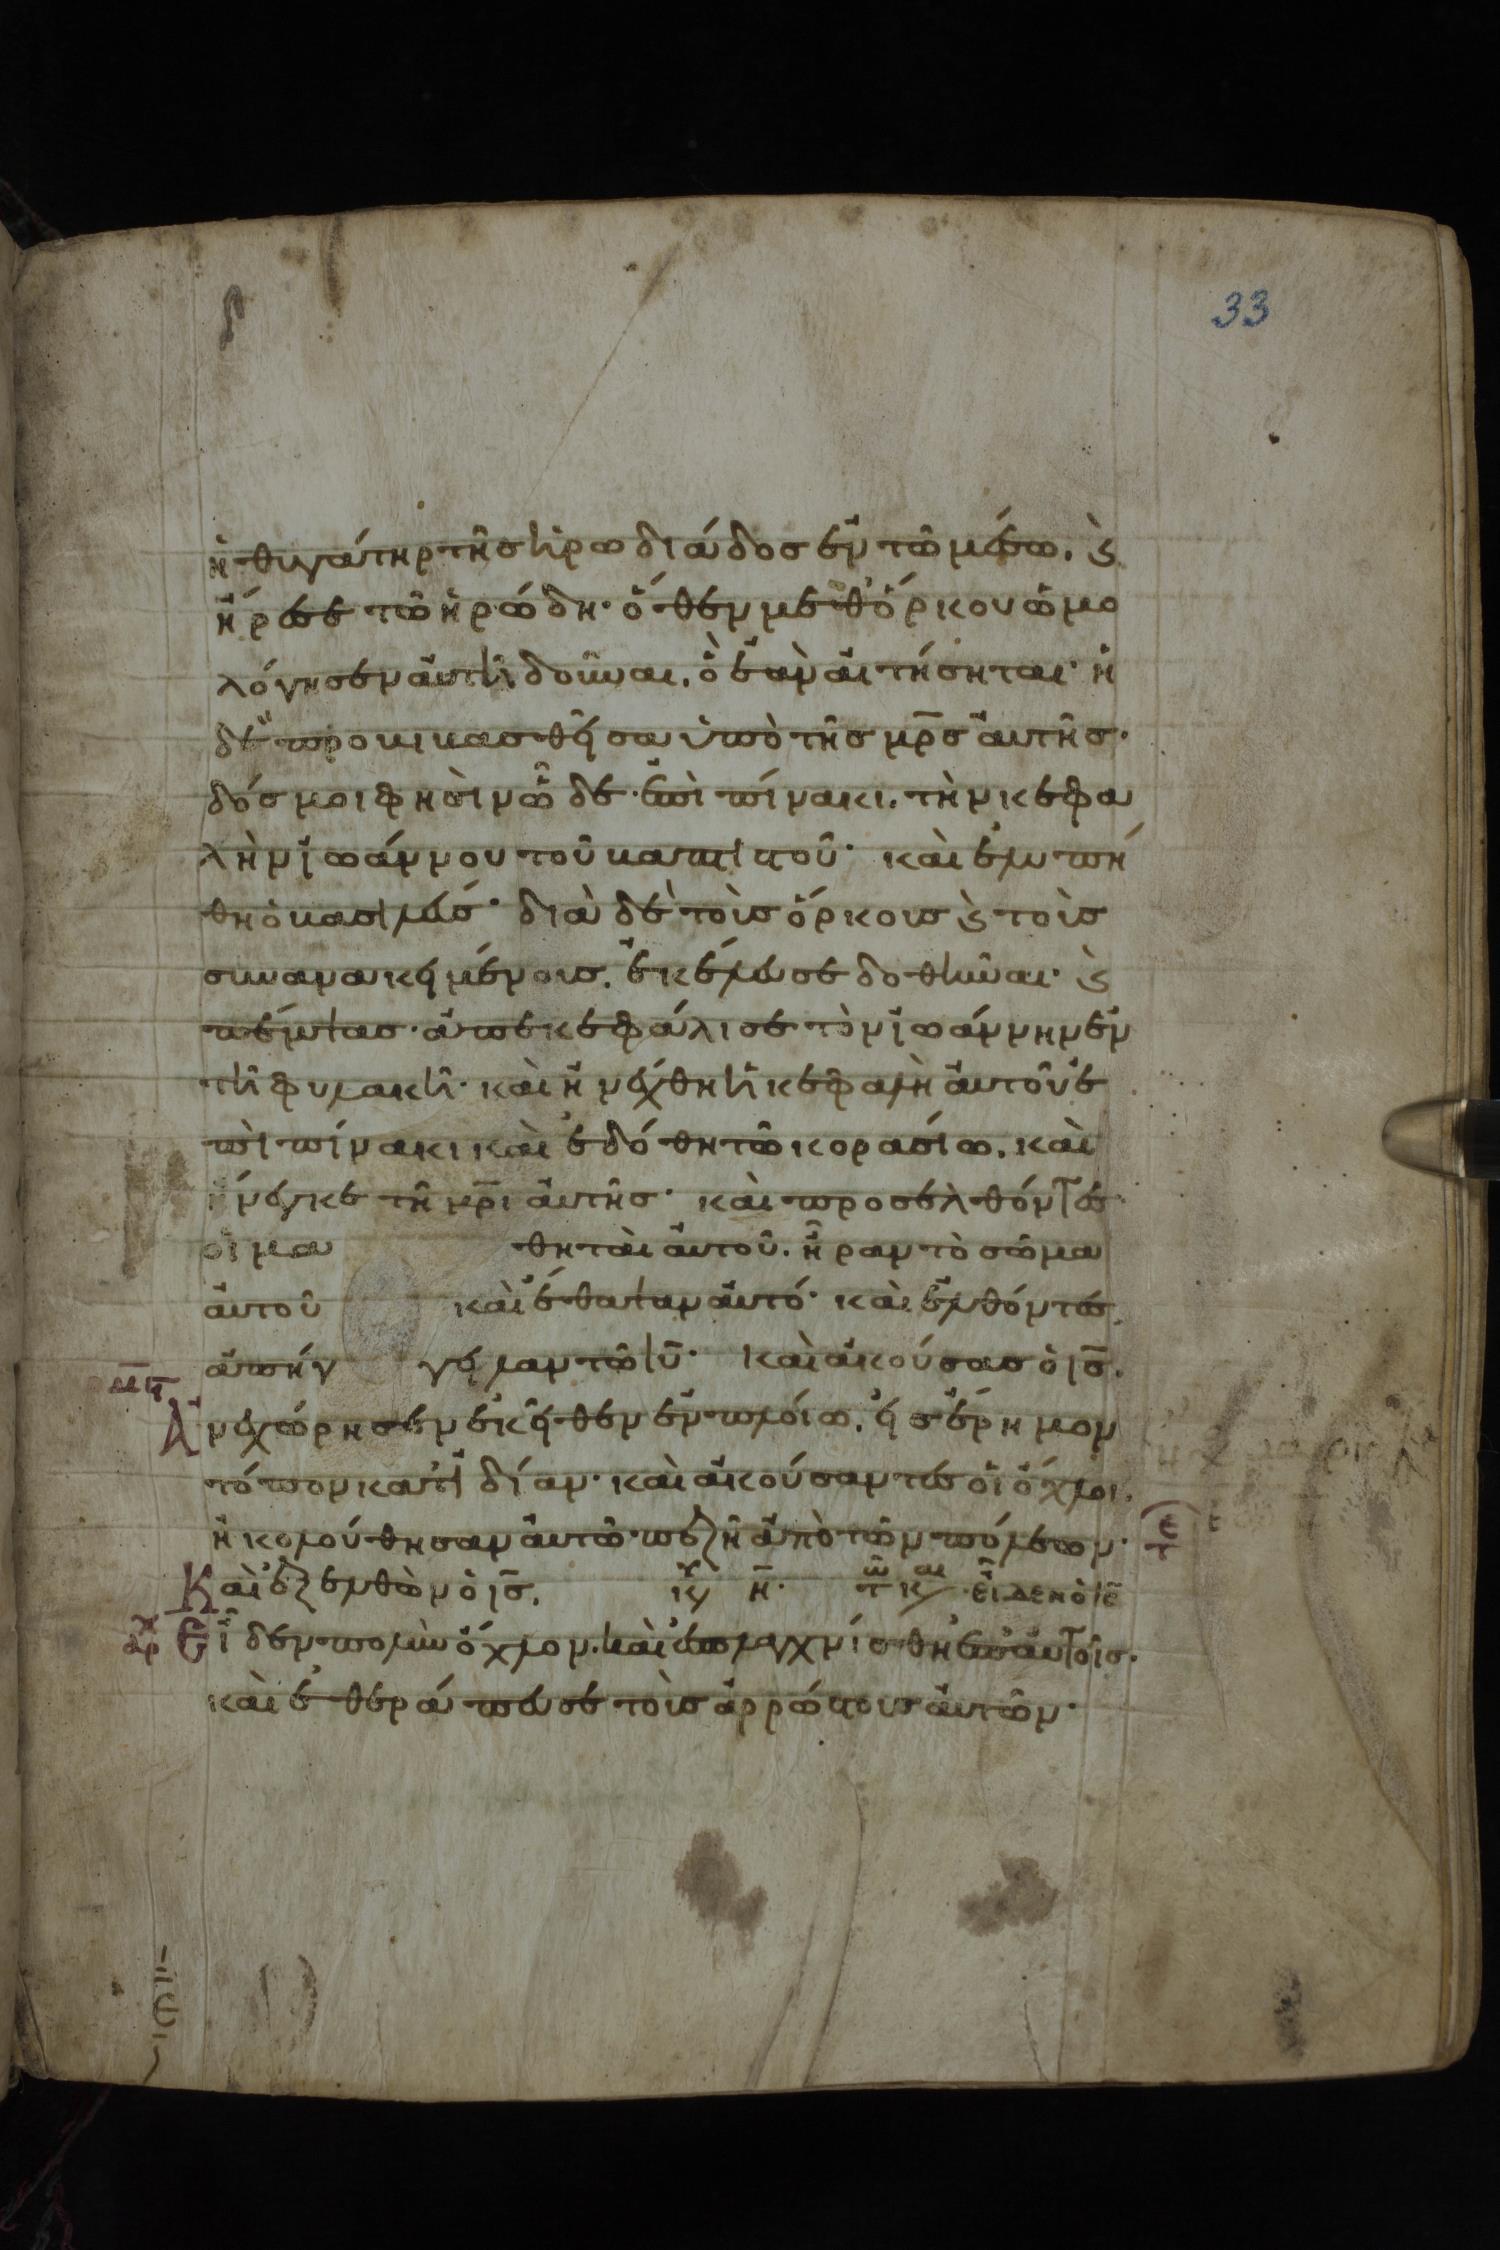 33
ἡ θυγάτηρ τῆς ἡρωδιάδος ἐν τῶ μέσω, ϗ
ἤρεσε τῶ ἡρώδη· ὅθεν μεθ' ὅρκου ὡμο
λόγησεν αὐτῆ δοῦναι, ὃ ἐὰν αἰτήσηται· ἡ
δὲ προβιβασθεῖσα ὑπὸ τῆς μρ̅ς αὐτῆς·
δός μοι φησὶν ὧδε· ἐπὶ πίνακι, τὴν κεφα
λὴν ἰωάννου τοῦ βαπτιστοῦ· καὶ ἐλυπή
θη ὁ βασιλεύς· διὰ δὲ τοὺς ὅρκους ϗ τοὺς
συνανακειμένους, ἐκέλευσε δοθῆναι· ϗ
πέμψας ἀπεκεφάλισε τὸν ἰωάννην ἐν
τῆ φυλακῆ· καὶ ἠνέχθη ἡ κεφαλὴ αὐτοῦ ἐ
πὶ πίνακι καὶ ἐδόθη τῶ κορασίω, καὶ
ἤνεγκε τῆ μρ̅ι αὐτῆς· καὶ προσελθόντες
οἱ μα θηταὶ αὐτοῦ, ἦραν τὸ σῶμα
αὐτοῦ καὶ ἔθαψαν αὐτό· καὶ ἐλθόντες
ἀπήγ γειλαν τῶ ιυ̅· καὶ ἀκούσας ὁ ις̅,
Ἀνεχώρησεν ἐκεῖθεν ἐν πλοίω, εἰς ἔρημον
τόπον κατ' ἰδίαν· καὶ ἀκούσαντες οἱ ὄχλοι,
ἠκολούθησαν αὐτῶ πεζῆ ἀπὸ τῶν πόλεων·
Καὶ ἐξελθὼν ὁ ις̅, κυ η̅· τω και εἶδεν ὁ ις̅
αρχ Εἶδεν πολὺν ὄχλον, καὶ ἐσπλαγχνίσθη ἐπ' αὐτοῖς·
καὶ ἐθεράπευσε τοὺς ἀρρώστους αὐτῶν·